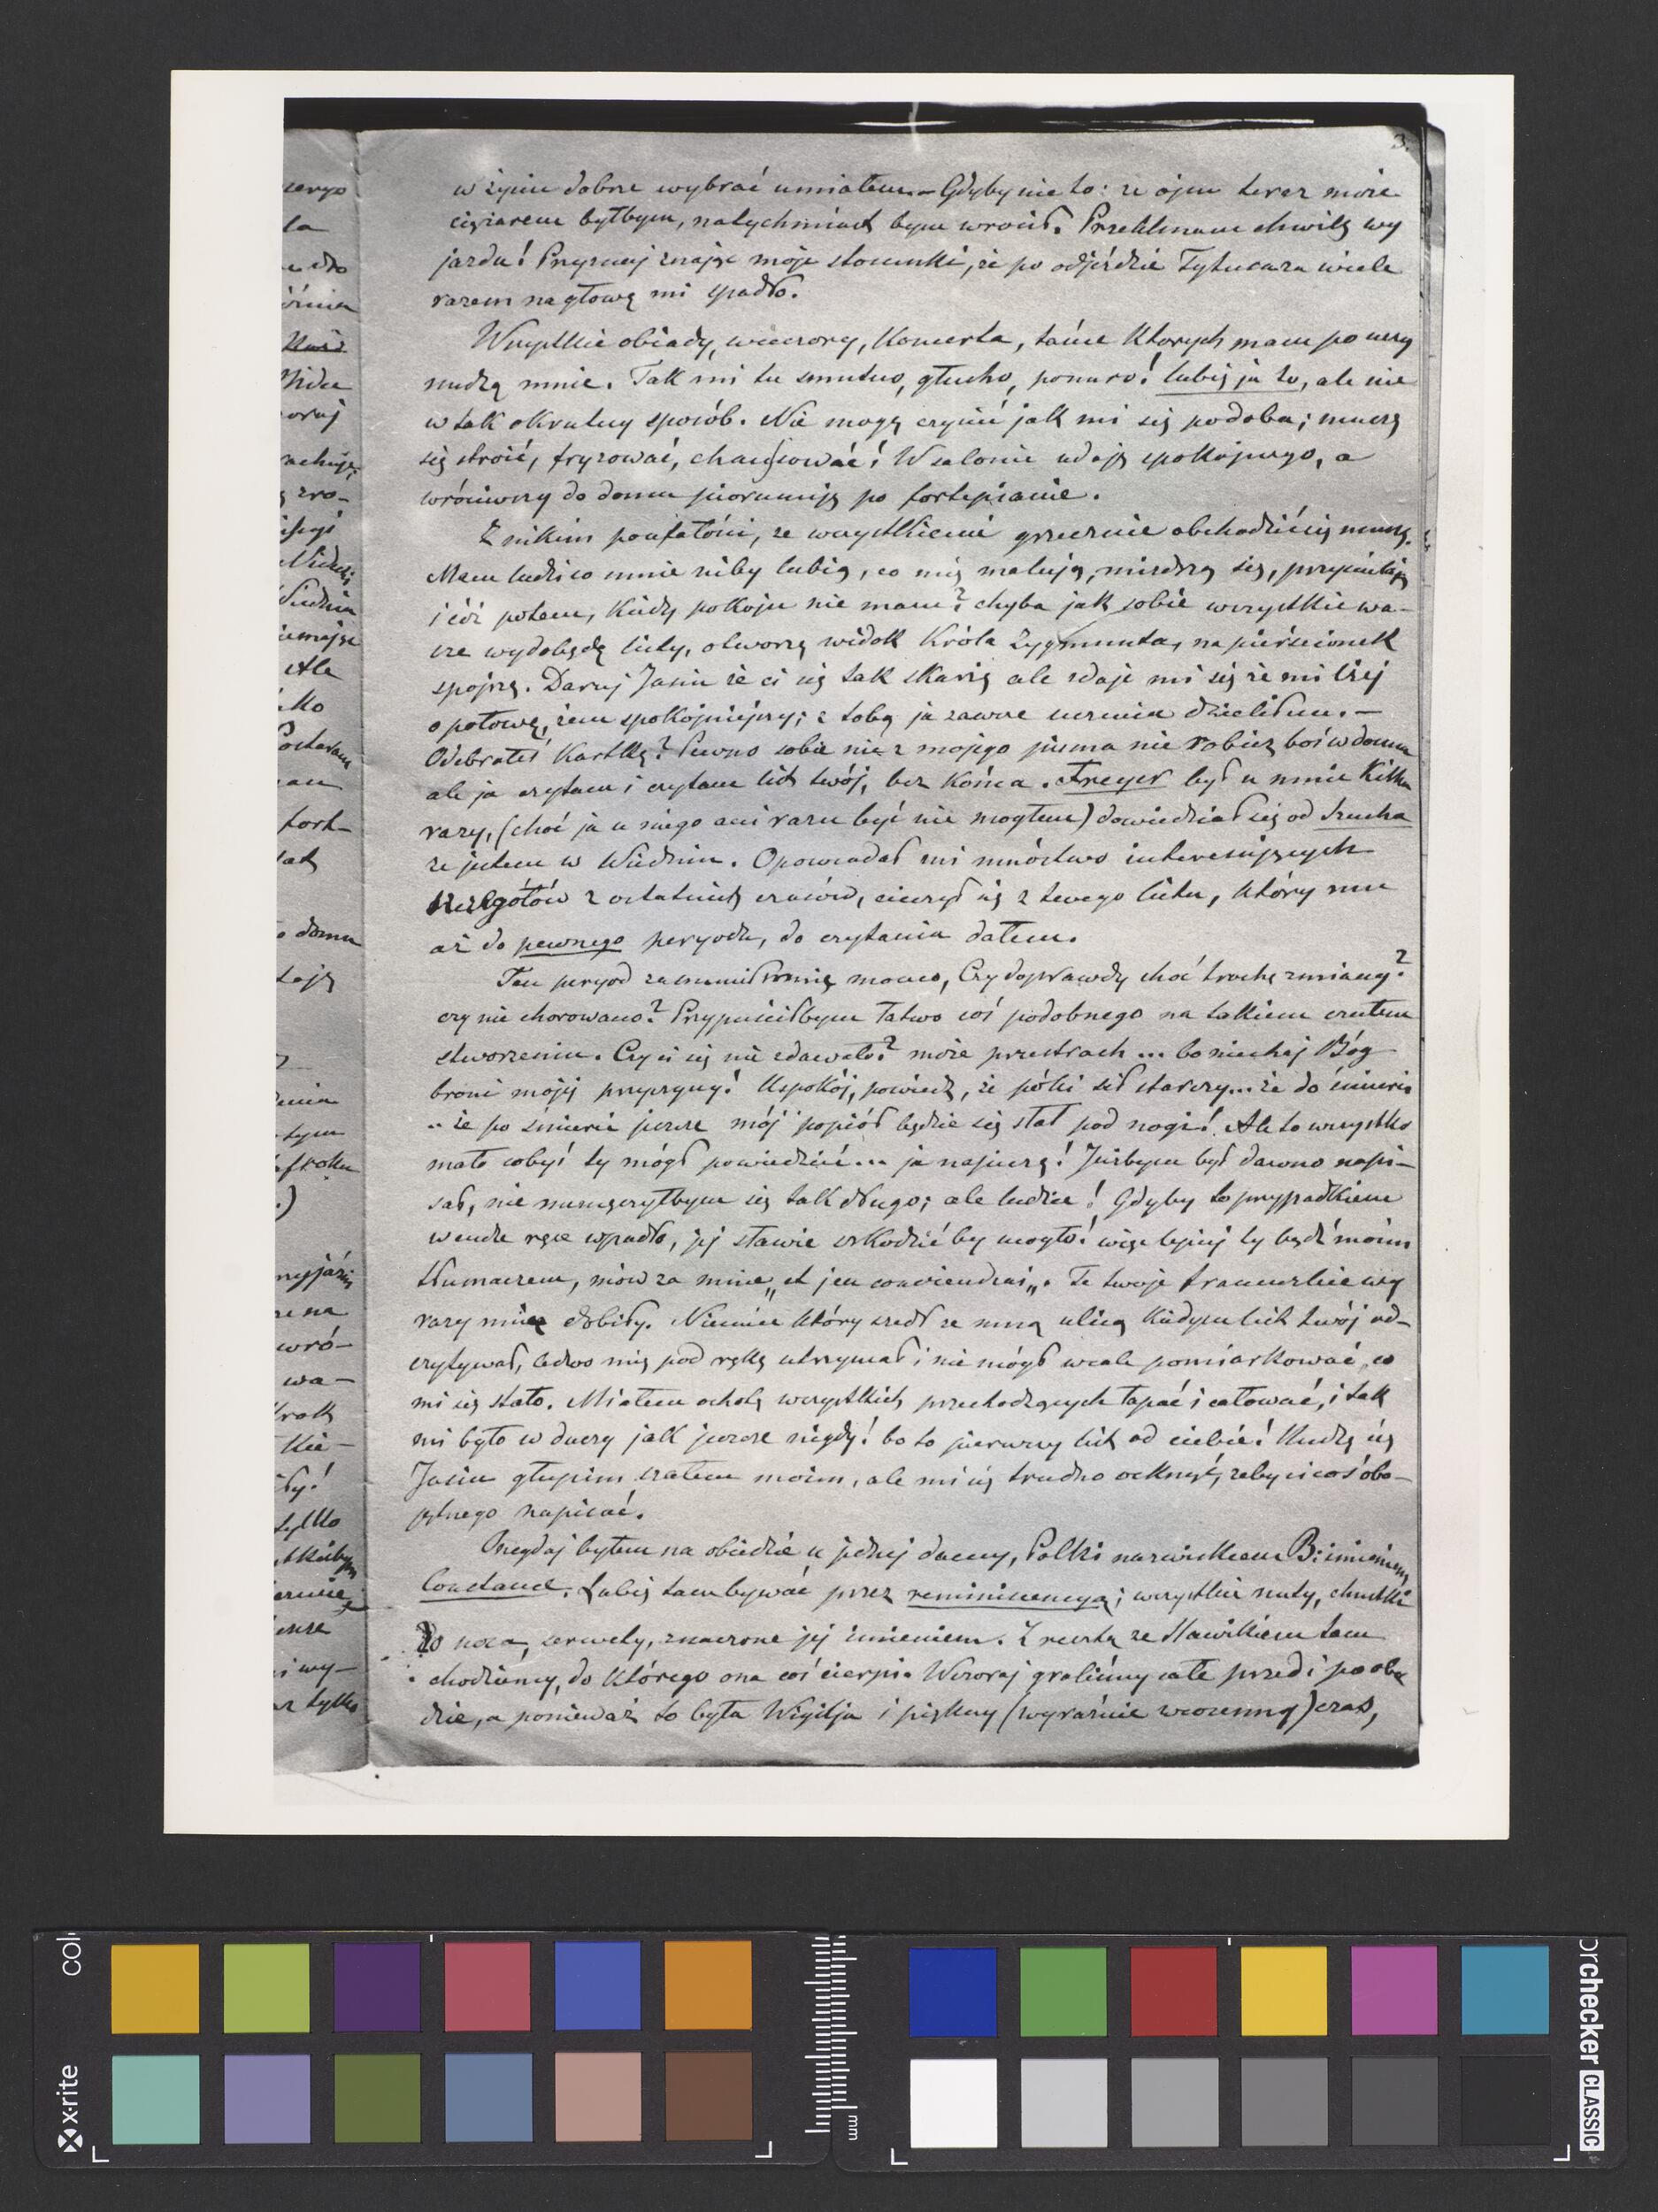 3.
w życiu dobrze wybrać umiałem. – Gdyby nie to: że ojcu teraz może
ciężarem byłbym, natychmiast bym wrócił. Przeklinam chwilę wy
jazdu! Przyznaj znając moje stosunki, że po odjeździe Tytusa za wiele
razem na głowę mi spadło.
Wszystkie obiady, wieczory, koncerta, tańce których mam po uszy
nudzą mnie. Tak mi tu smutno, głucho, ponuro! lubię ja to, ale nie
w tak okrutny sposób. Nie mogę czynić jak mi się podoba; muszę
się stroić, fryzować, chaussować! W salonie udaję spokojnego, a
wróciwszy do domu piorunuję po fortepianie.
Z nikim poufałości, ze wszystkiemi grzecznie obchodzić się muszę.
Mam ludzi co mnie niby lubią, co mię malują, mizdrzą się, przymilają
i cóż potem, kiedy pokoju nie mam? chyba jak sobie wszystkie wa-
sze wydobędę listy, otworzę widok Króla Zygmunta, na pierścionek
spojrzę. Daruj Jasiu że ci się tak skarżę ale zdaje mi się że mi lżej
o połowę, żem spokojniejszy; z tobą ja zawsze uczucia dzieliłem. –
Odebrałeś kartkę? Pewno sobie nic z mojego pisma nie robisz boś w domu
ale ja czytam i czytam list twój, bez końca. Freyer był u mnie kilka
razy, (choć ja u niego ani razu być nie mogłem) dowiedział się od Szucha
że jestem w Wiedniu. Opowiadał mi mnóstwo interesujących
szczegółów z ostatnich czasów, cieszył się z twego listu, który mu
aż do pewnego peryodu, do czytania dałem.
Ten peryod zasmucił mnię mocno, Czy doprawdy choć trochę zmiany?
czy nie chorowano? Przypuściłbym łatwo coś podobnego na takiem czułem
stworzeniu. Czy ci się nie zdawało? może przestrach ... bo niechaj Bóg
broni mojej przyczyny! Uspokój, powiedz, że póki sił starczy... że do śmierci
.. że po śmierci jeszcze mój popiół będzie się słał pod nogi! Ale to wszystko
mało cobyś ty mógł powiedzieć... ja napiszę! Jużbym był dawno napi-
sał, nie męczyłbym się tak długo; ale ludzie! Gdyby to przypadkiem
w cudze ręce wpadło, jej sławie szkodzić by mogło! więc lepiej ty bądź moim
tłumaczem, mów za mnie „et j'en conviendrai„. Te twoje francuzkie wy
razy mię dobiły. Niemiec który szedł ze mną ulicą kiedym list twój od-
czytywał, ledwo mię pod rękę utrzymał i nie mógł wcale pomiarkować, co
mi się stało. Miałem ochotę wszystkich przechodzących łapać i całować, i tak
mi było w duszy jak jeszcze nigdy! bo to pierwszy list od ciebie! Nudzę cię
Jasiu głupim szałem moim, ale mi się trudno ocknąć, żeby ci coś obo-
jętnego napisać.
Onegdaj byłem na obiedzie u jednej damy, Polki nazwiskiem B: imieniem
Constance. Lubię tam bywać przez reminiscencyą; wszystkie nuty, chustki
Do nosa, serwety, znaczone jej imieniem. Zresztą ze Sławikiem tam
chodziemy, do którego ona coś cierpi. Wczoraj graliśmy całe przed i po obie
dzie, a ponieważ to była Wigilja i piękny (wyraźnie wiosenny) czas,